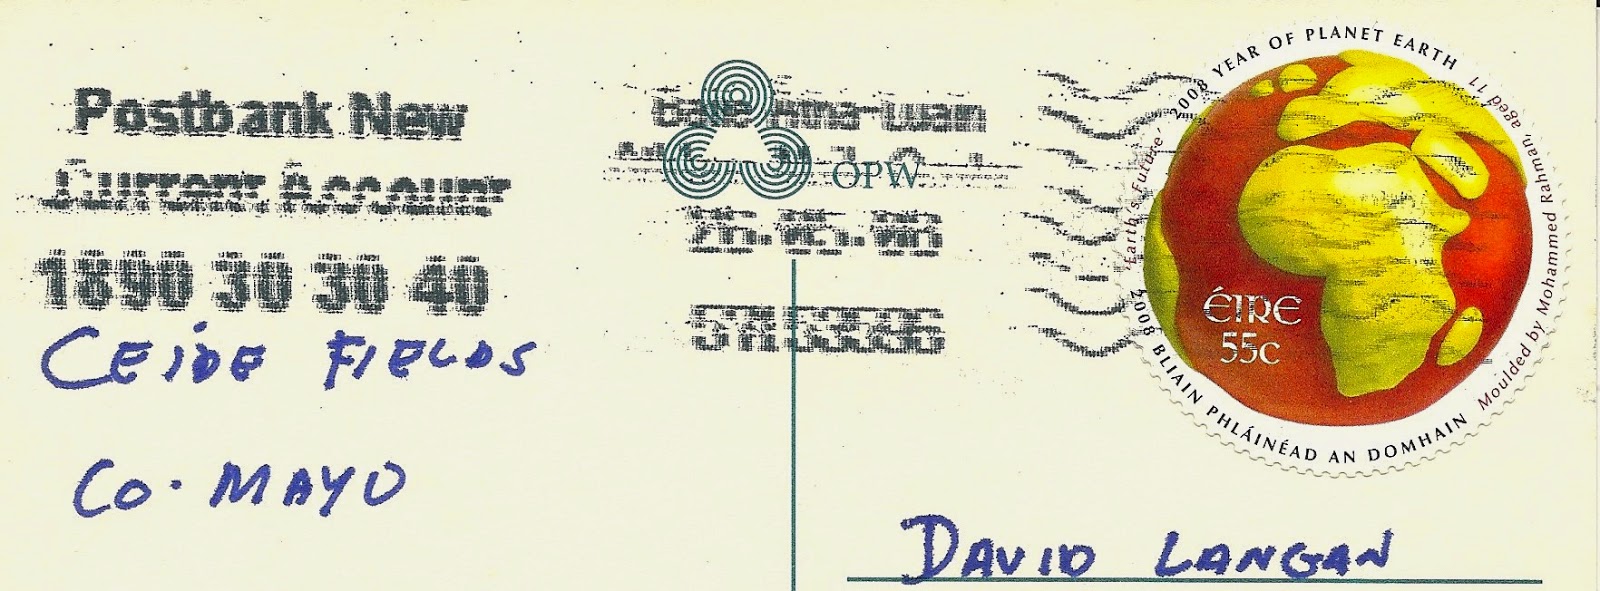 Postbank New
Current Account
1890 30 30 40
CEIDE FIELDS
CO. MAYO
OPW
2008 YEAR OF PLANET EARTH
'Earth's Future'
Moulded by Mohammed Rahman, aged 11
ÉIRE
55c
2008 BLIAIN PHLÁINÉAD AN DOMHAIN
DAVID LANGAN